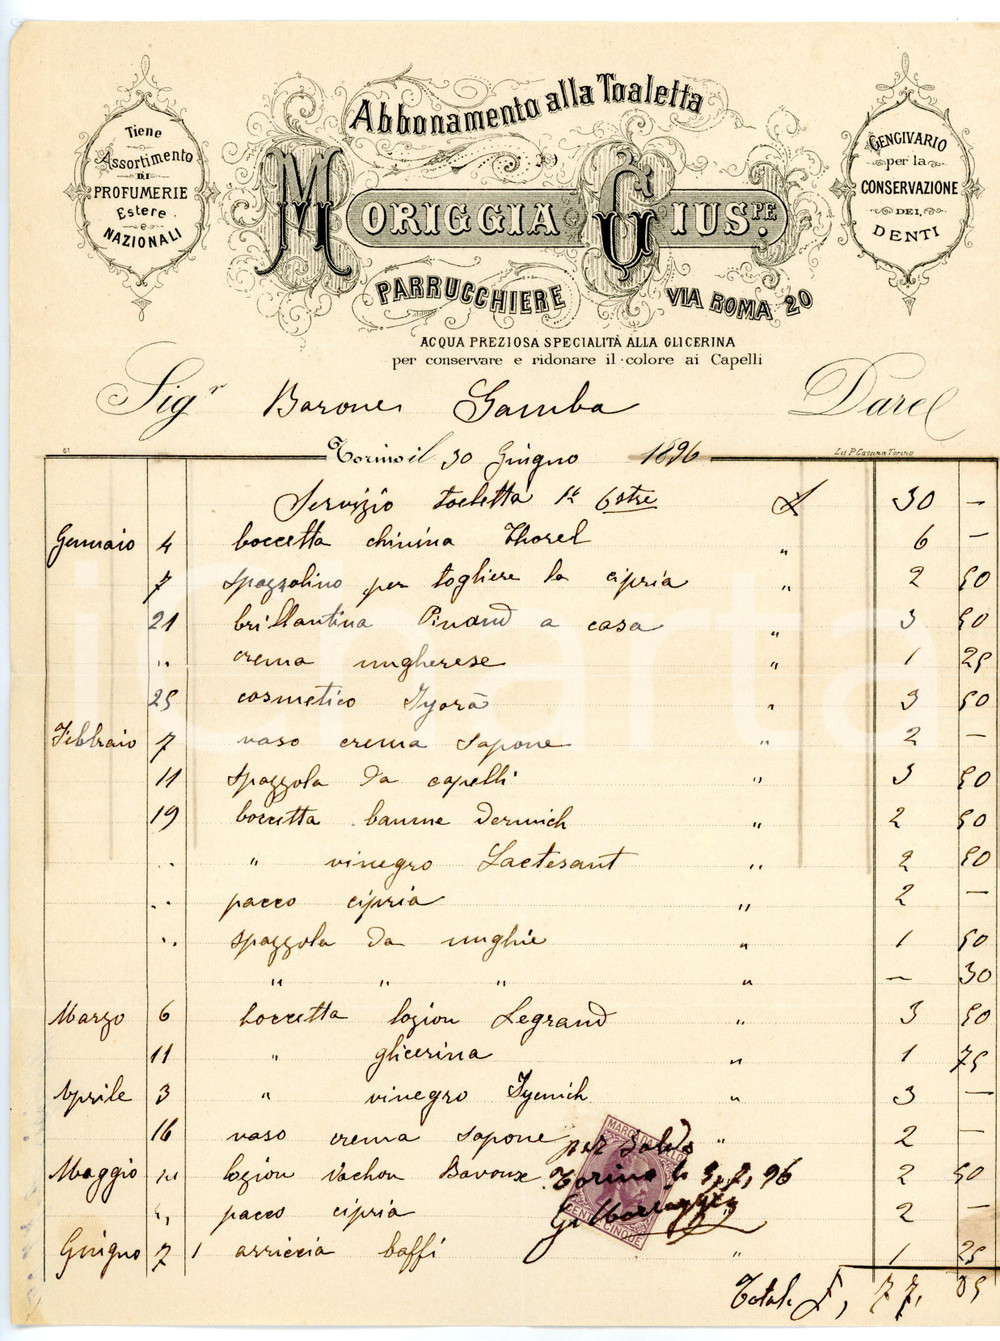 Abbonamento alla Toaletta
Tiene
Assortimento
DI
PROFUMERIE
Estere
e
NAZIONALI
MORIGGIA GIUS.PE
GENGIVARIO
per la
CONSERVAZIONE
DEI
DENTI
PARRUCCHIERE VIA ROMA 20
ACQUA PREZIOSA SPECIALITÀ ALLA GLICERINA
per conservare e ridonare il colore ai Capelli
Sigr Barone Gamba Dare
Torino il 30 Giugno 1896
Lit. P. Cassina Torino
Servizio toeletta 1º 6stre £ 30 —
Gennaio 4 boccetta chinina Thorel " 6 —
7 spazzolino per togliere la cipria " 2 50
21 brillantina Pinaud a casa " 3 50
" crema ungherese " 1 25
25 cosmetico " 3 50
Febbraio 7 vaso crema sapone " 2 —
11 spazzola da capelli " 3 50
19 boccetta baume " 2 50
" " vinegro Lactesant " 2 50
" pacco cipria " 2 —
" spazzola da unghie " 1 50
" " " " — 30
Marzo 6 boccetta lozion Legrand " 3 50
11 " glicerina " 1 75
Aprile 3 " vinegro " 3 —
16 vaso crema sapone " 2 —
Maggio lozion Vachon Bavoux 2 50
" pacco cipria 2 —
Giugno 7 1 arriccia baffi " 1 25
Total £, 77, 05
per saldo
Torino li 3, 7, 96
G. Moriggia
MARCA DA BOLLO
CENT. CINQUE
iCharta